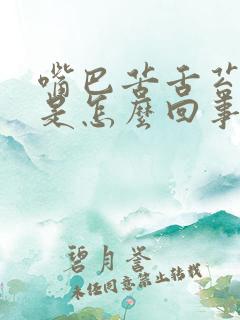 嘴巴苦舌苔
是怎麼回事
碧月誉
未经同意禁止转载